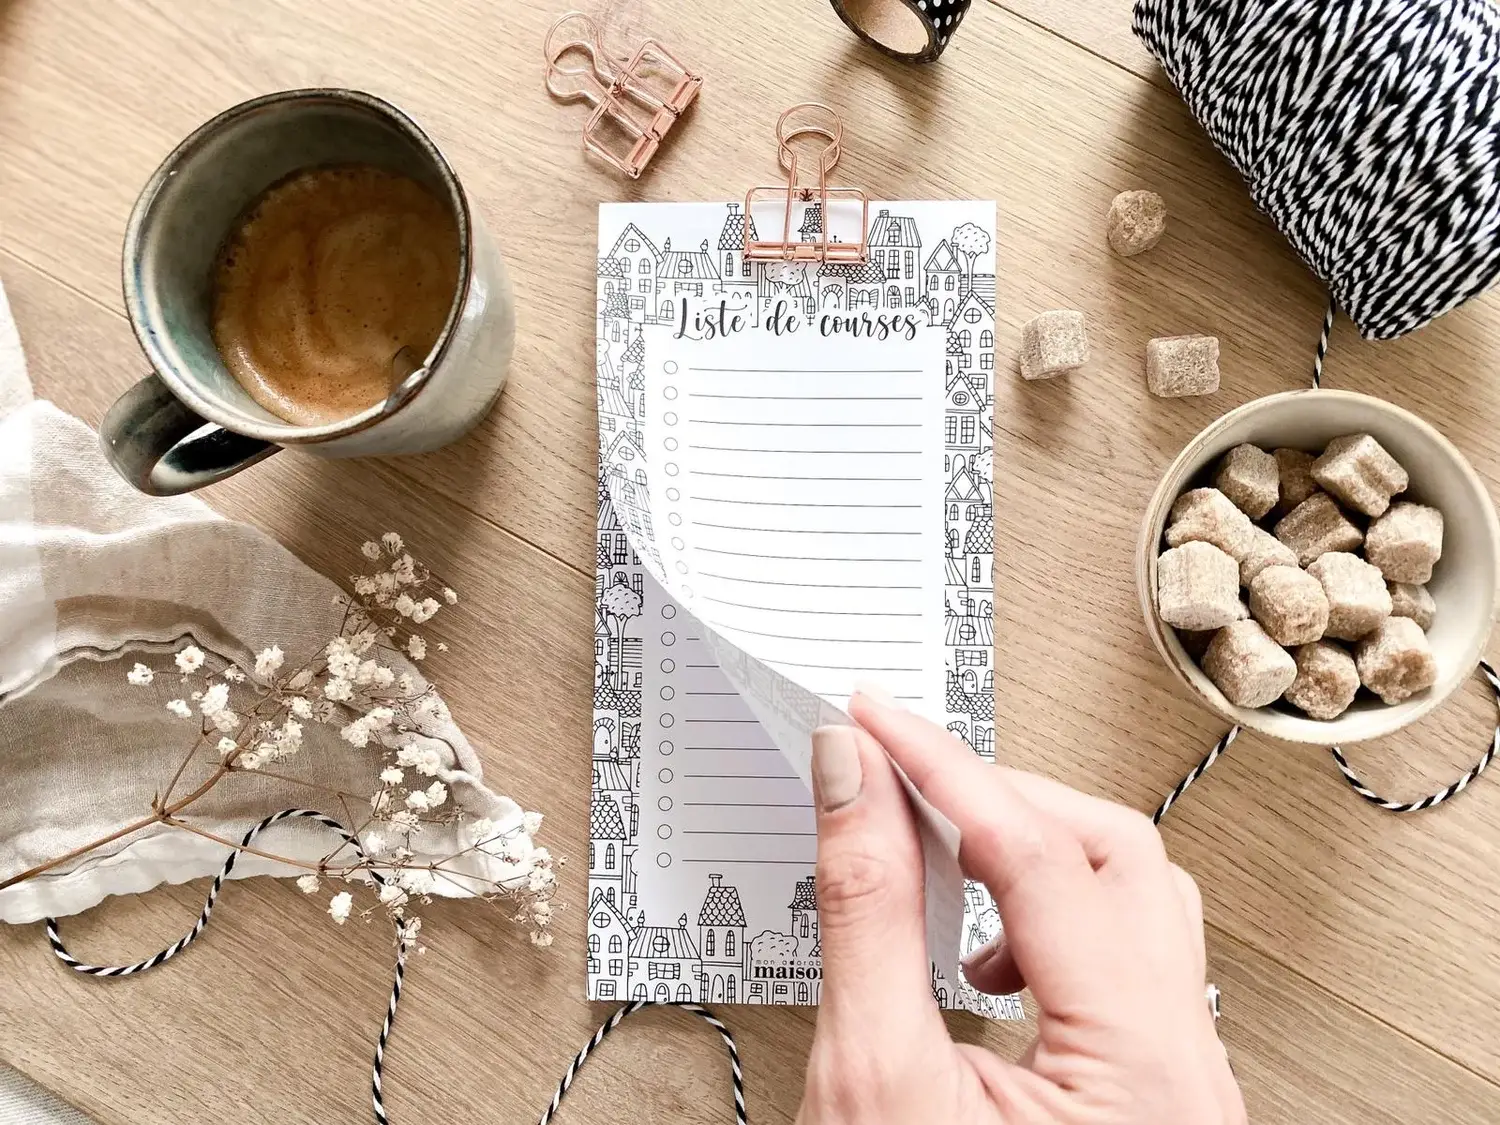 Liste de courses
mon adorab
maison